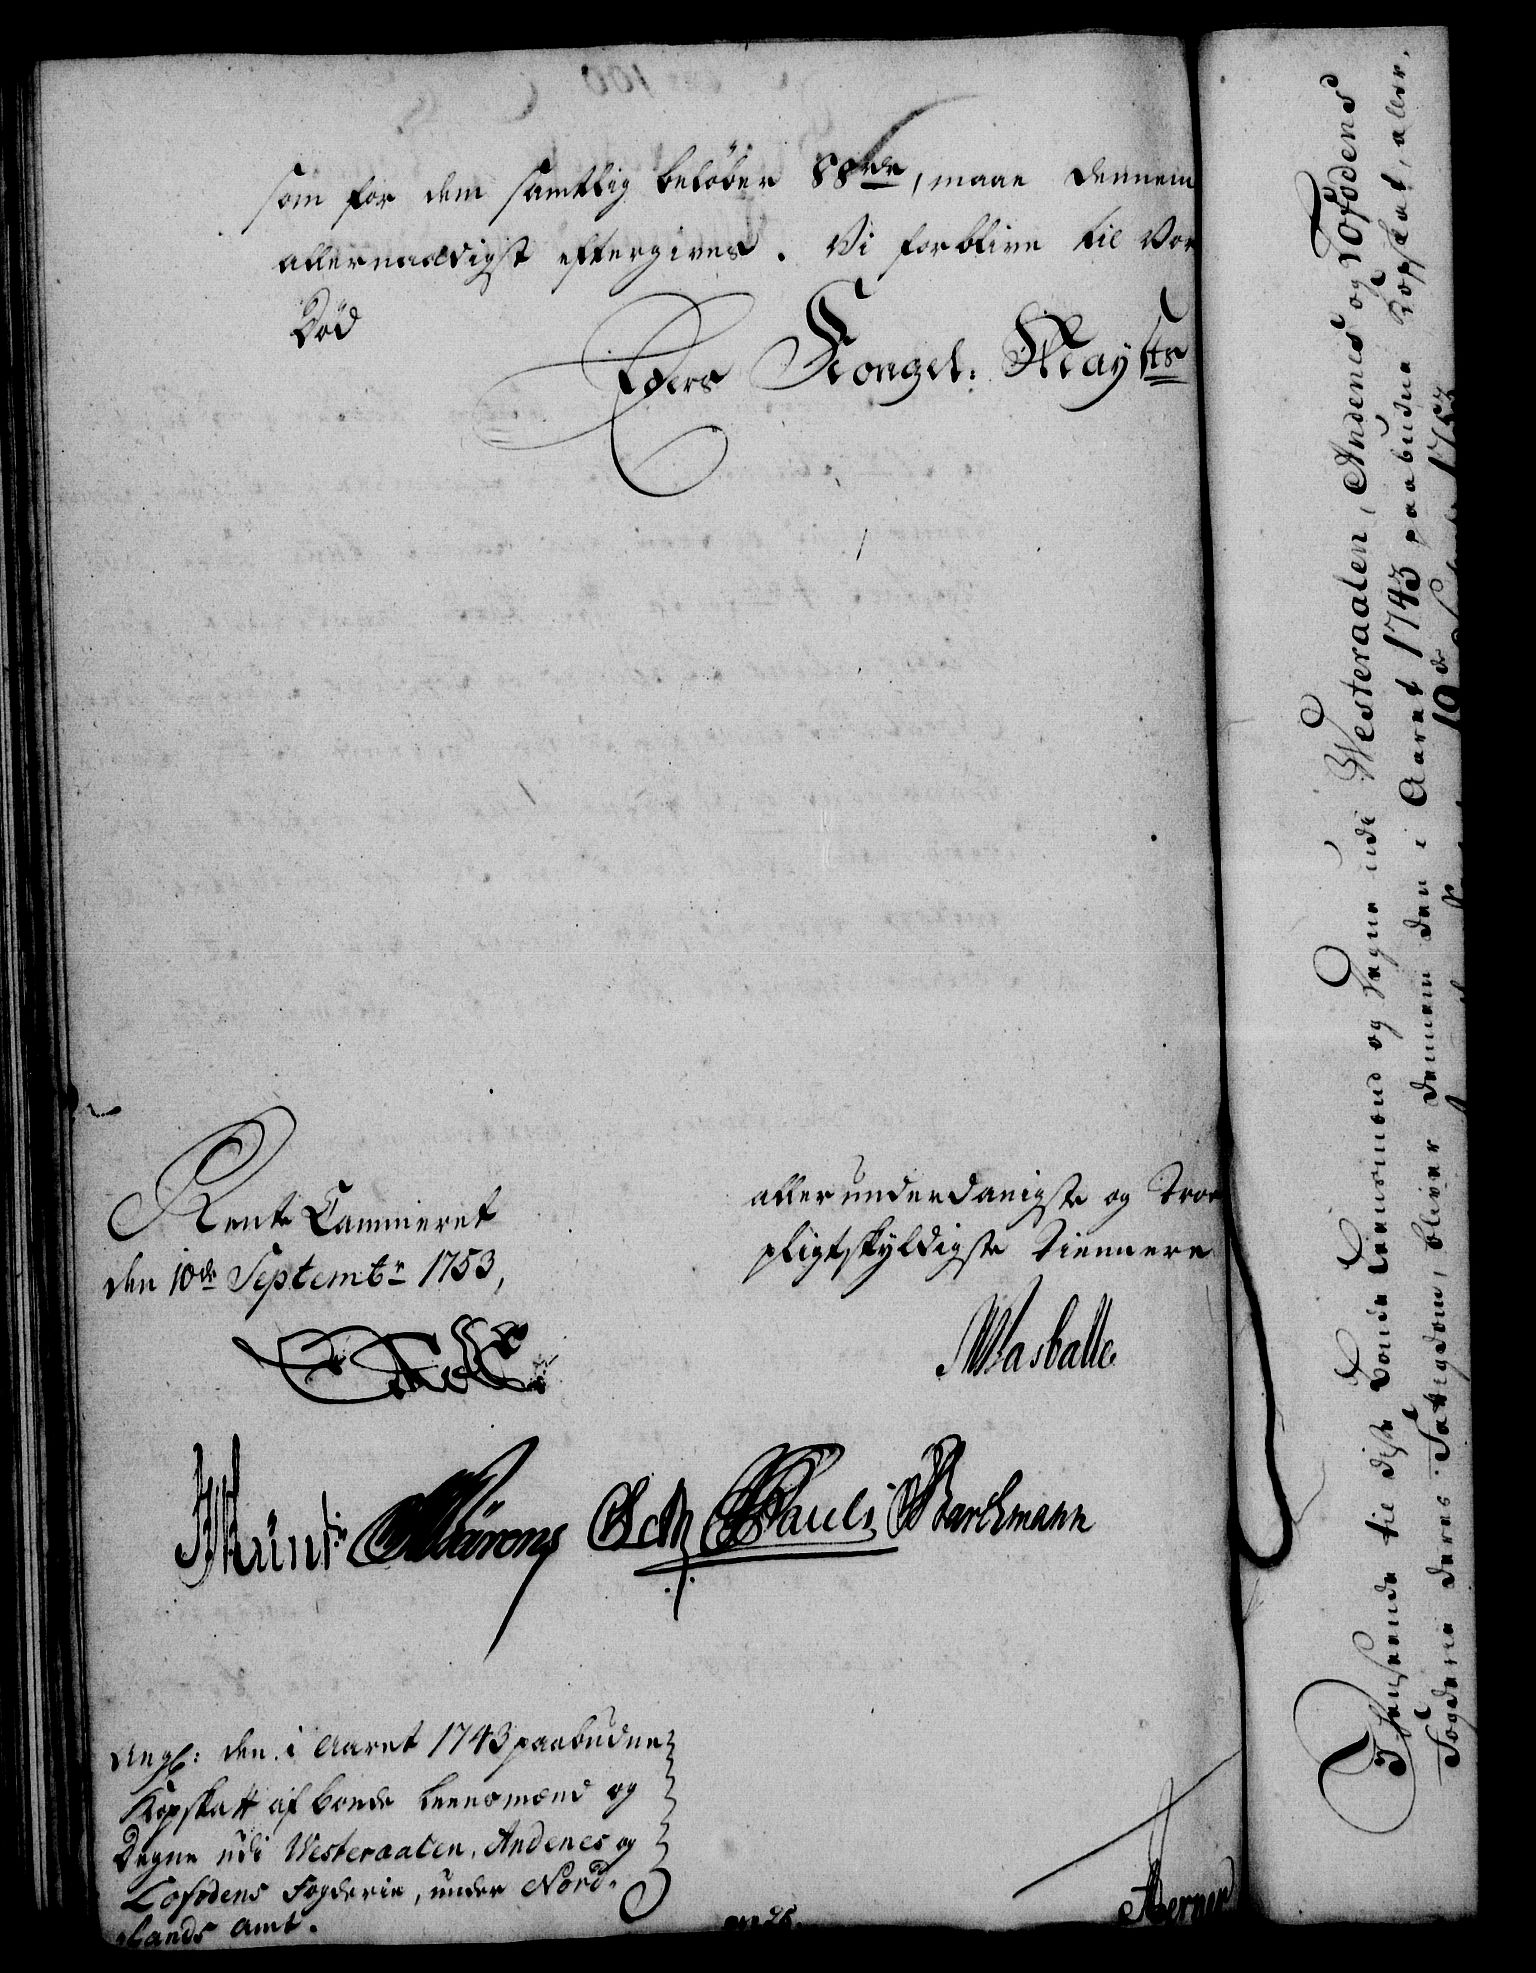 som for dem samtlig beløber 88 rdr, maae dennem
allernaadigst eftergives. Vi forblive til Vor
Død
Eders Kongel: Mayts
Rente Cammeret
den 10de Septembr 1753,
allerunderdanigste og Troe
pligtskyldigste Tiennere
Holst
Wasballe
Münt
Bartmann
Ang: den i Aaret 1743 paabudne
Kopskatt af bonde Leensmænd og
Degne udi Westeraalen, Andenes og
Lofodens Fogderie, under Nord-
lands Amt.
I Henseende til disse Bonde Leensmænd og Degne udi Westeraalen, Andenes og Lofodens
Fogderie deres Fattigdom, bliver dennem den i Aaret 1743 paabudne Kopskat, aller-
10de 1753